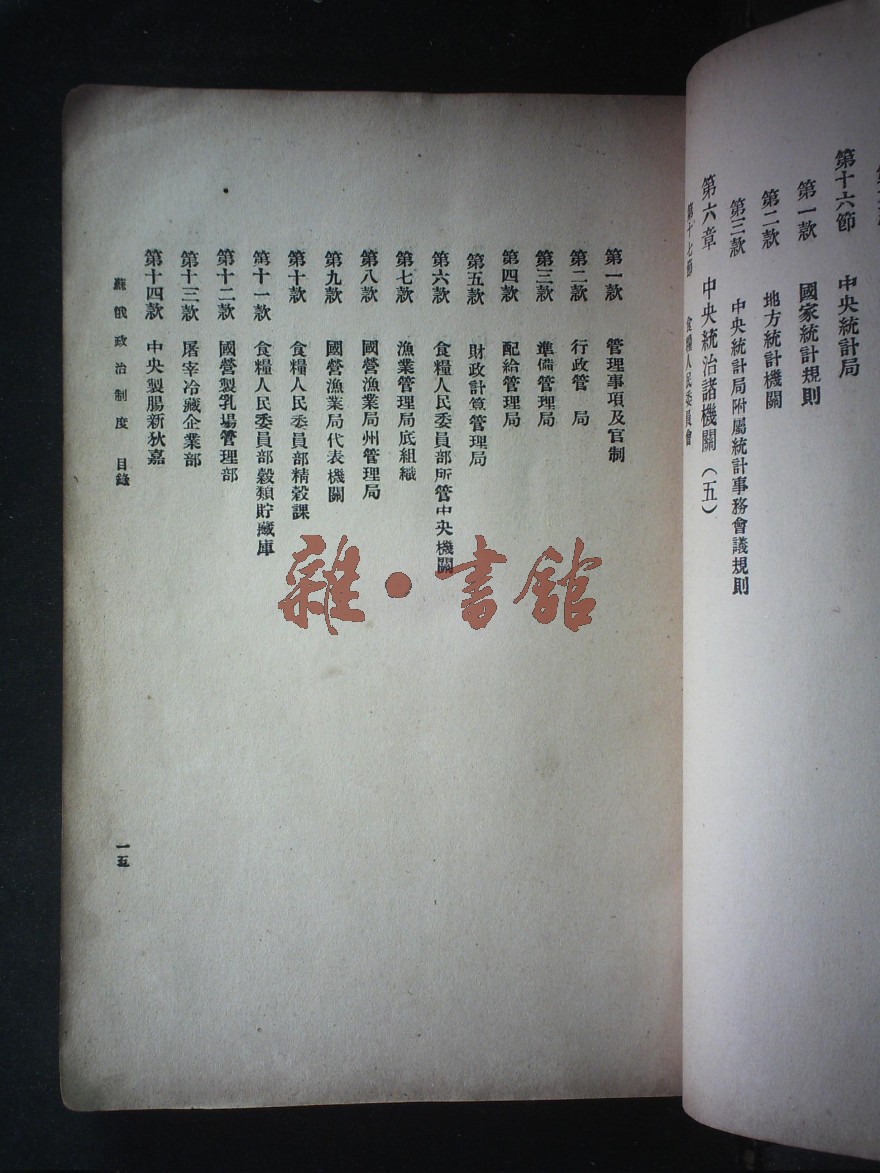 第十六節 中央統計局
第一款 國家統計規則
第二款 地方統計機關
第三款 中央統計局附屬統計事務會議規則
第六章 中央統治諸機關（五）
第十七節 食糧人民委員會
第一款 管理事項及官制
第二款 行政管 局
第三款 準備管理局
第四款 配給管理局
第五款 財政計算管理局
第六款 食糧人民委員部所管中央機關
第七款 漁業管理局底組織
第八款 國營漁業局州管理局
第九款 國營漁業局代表機關
第十款 食糧人民委員部精穀課
第十一款 食糧人民委員部穀類貯藏庫
第十二款 國營製乳場管理部
第十三款 屠宰冷藏企業部
第十四款 中央製腸新狄嘉
蘇俄政治制度 目錄
一五
雜·書館